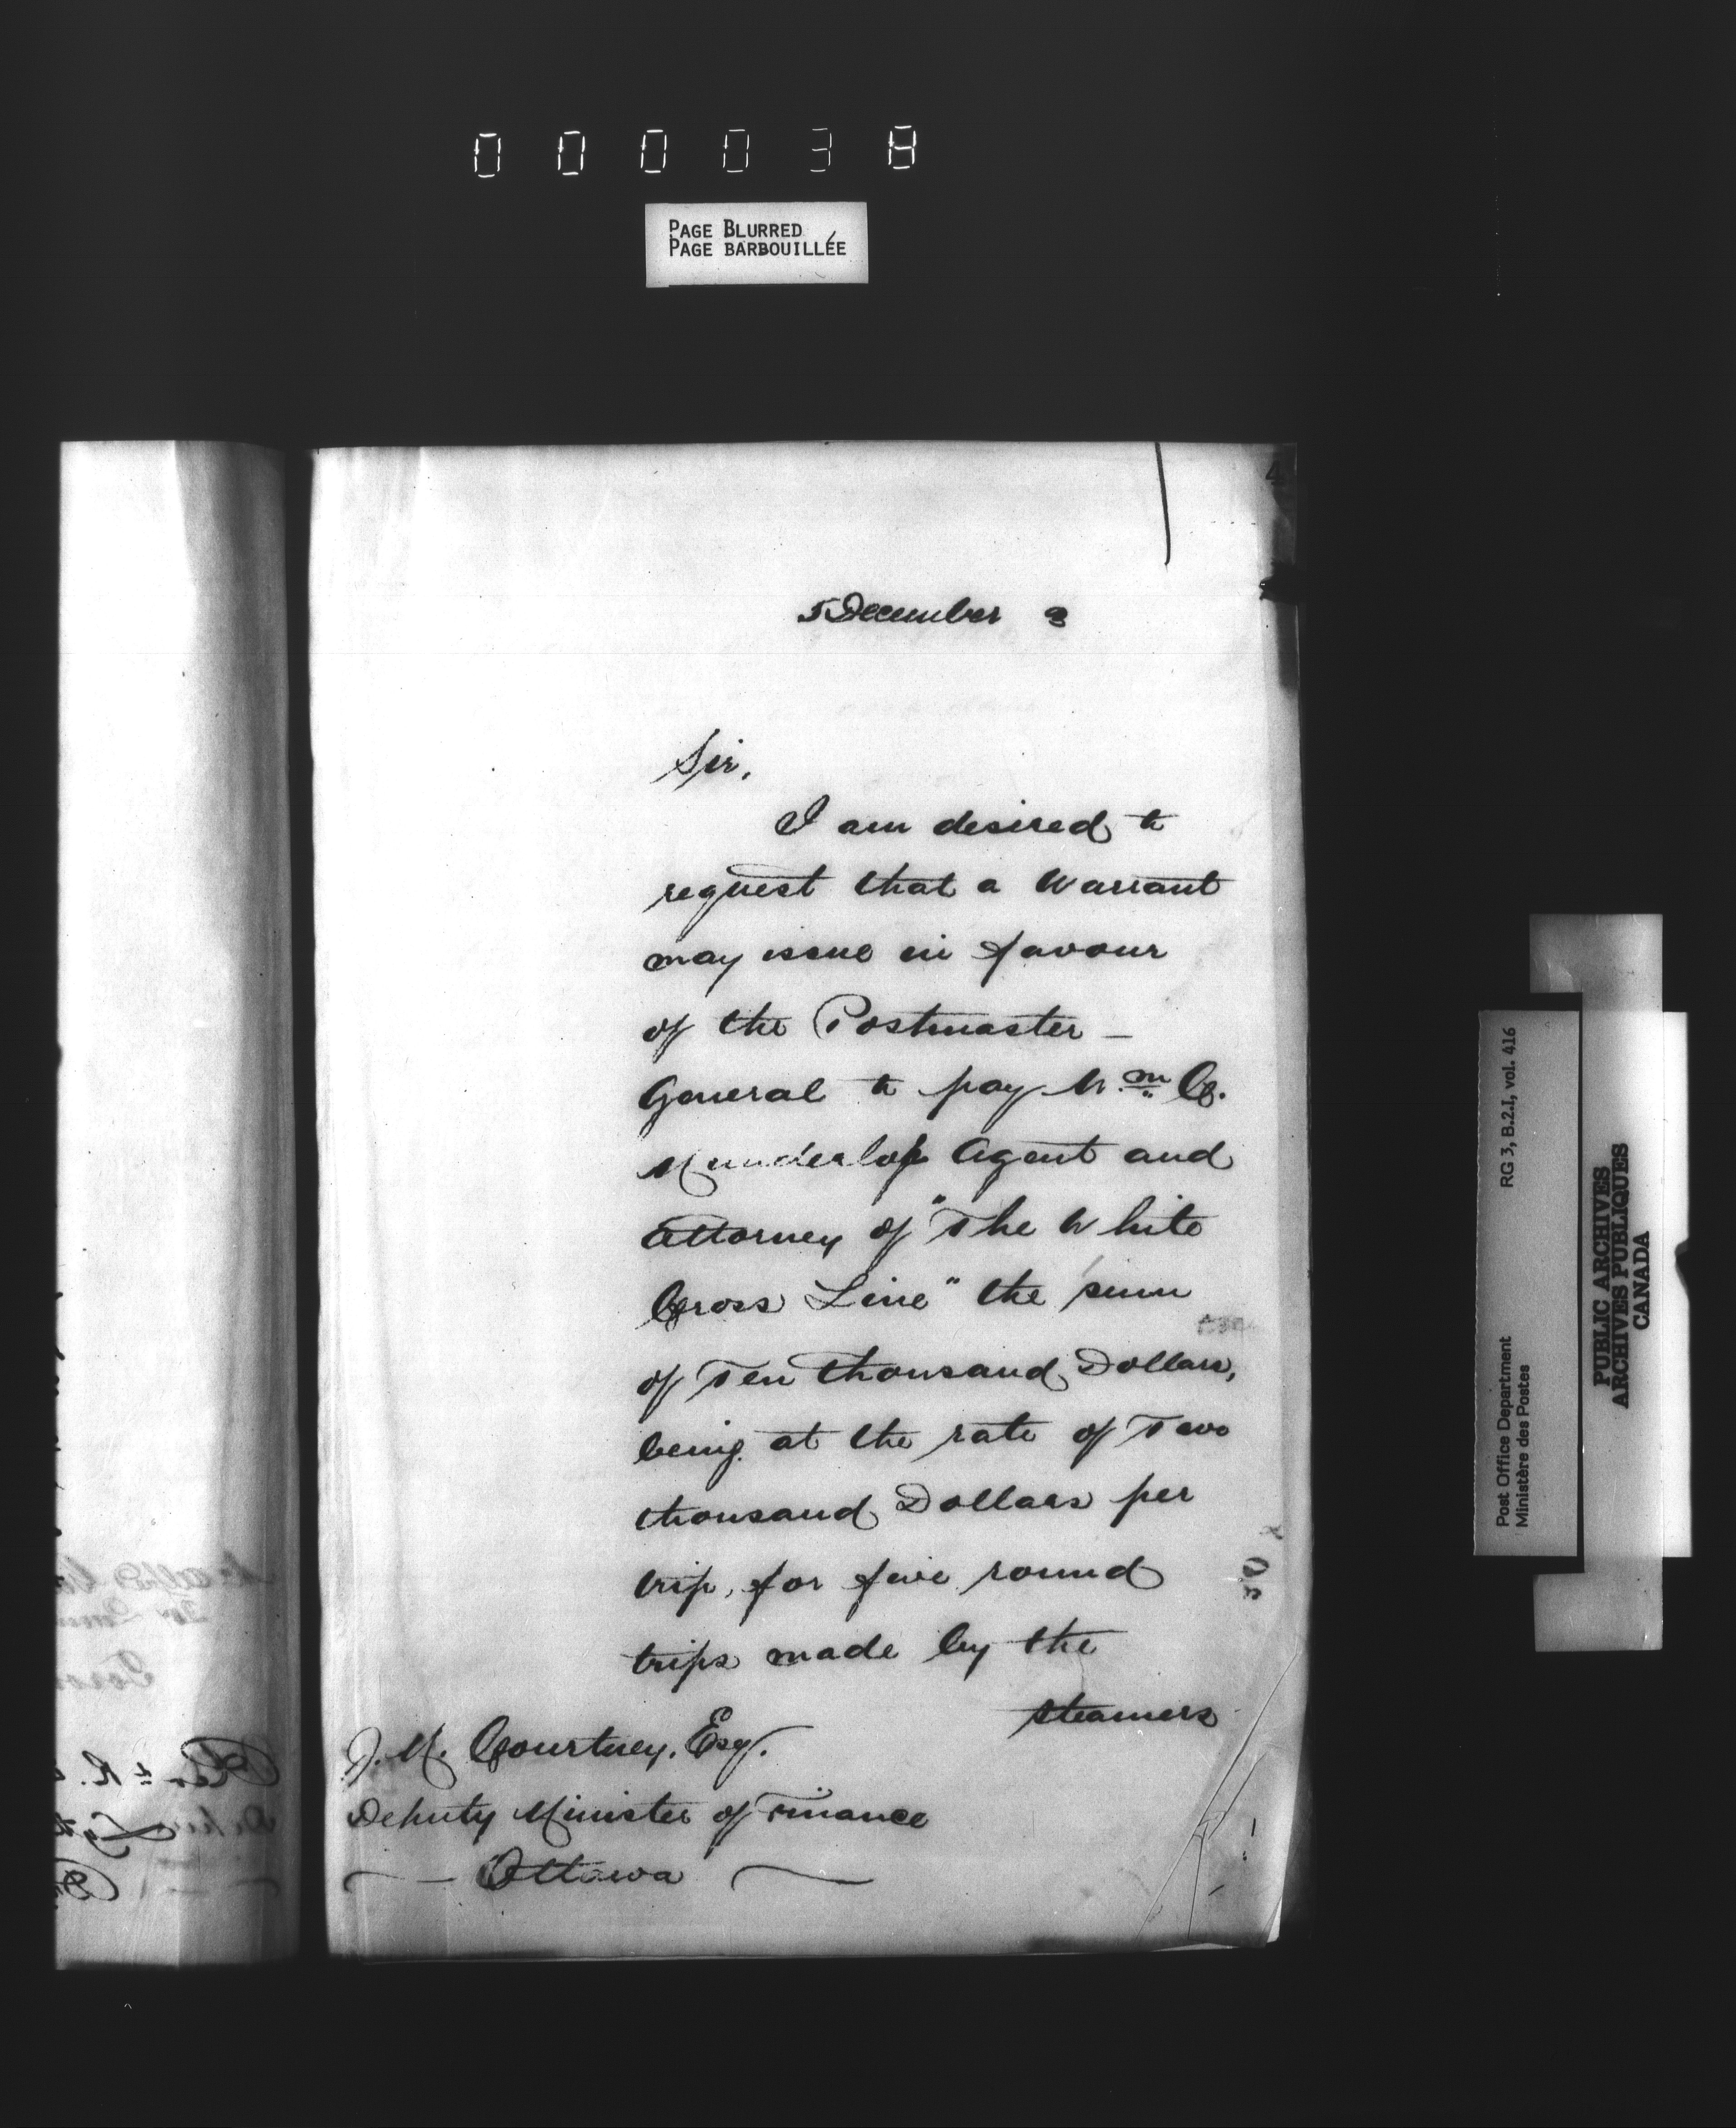 000038
PAGE BLURRED
PAGE BARBOUILLÉE
4
5 December 8
Sir,
I am desired to
request that a Warrant
may issue in favour
of the Postmaster –
General to pay Wm. C.
Munderloh Agent and
Attorney of "The White
Cross Line" the sum
of Ten thousand Dollars,
being at the rate of Two
thousand Dollars per
trip, for five round
trips made by the
steamers
J. M. Courtney, Esq.
Deputy Minister of Finance
Ottawa
Post Office Department
Ministère des Postes
RG 3, B.2.I, vol. 416
PUBLIC ARCHIVES
ARCHIVES PUBLIQUES
CANADA